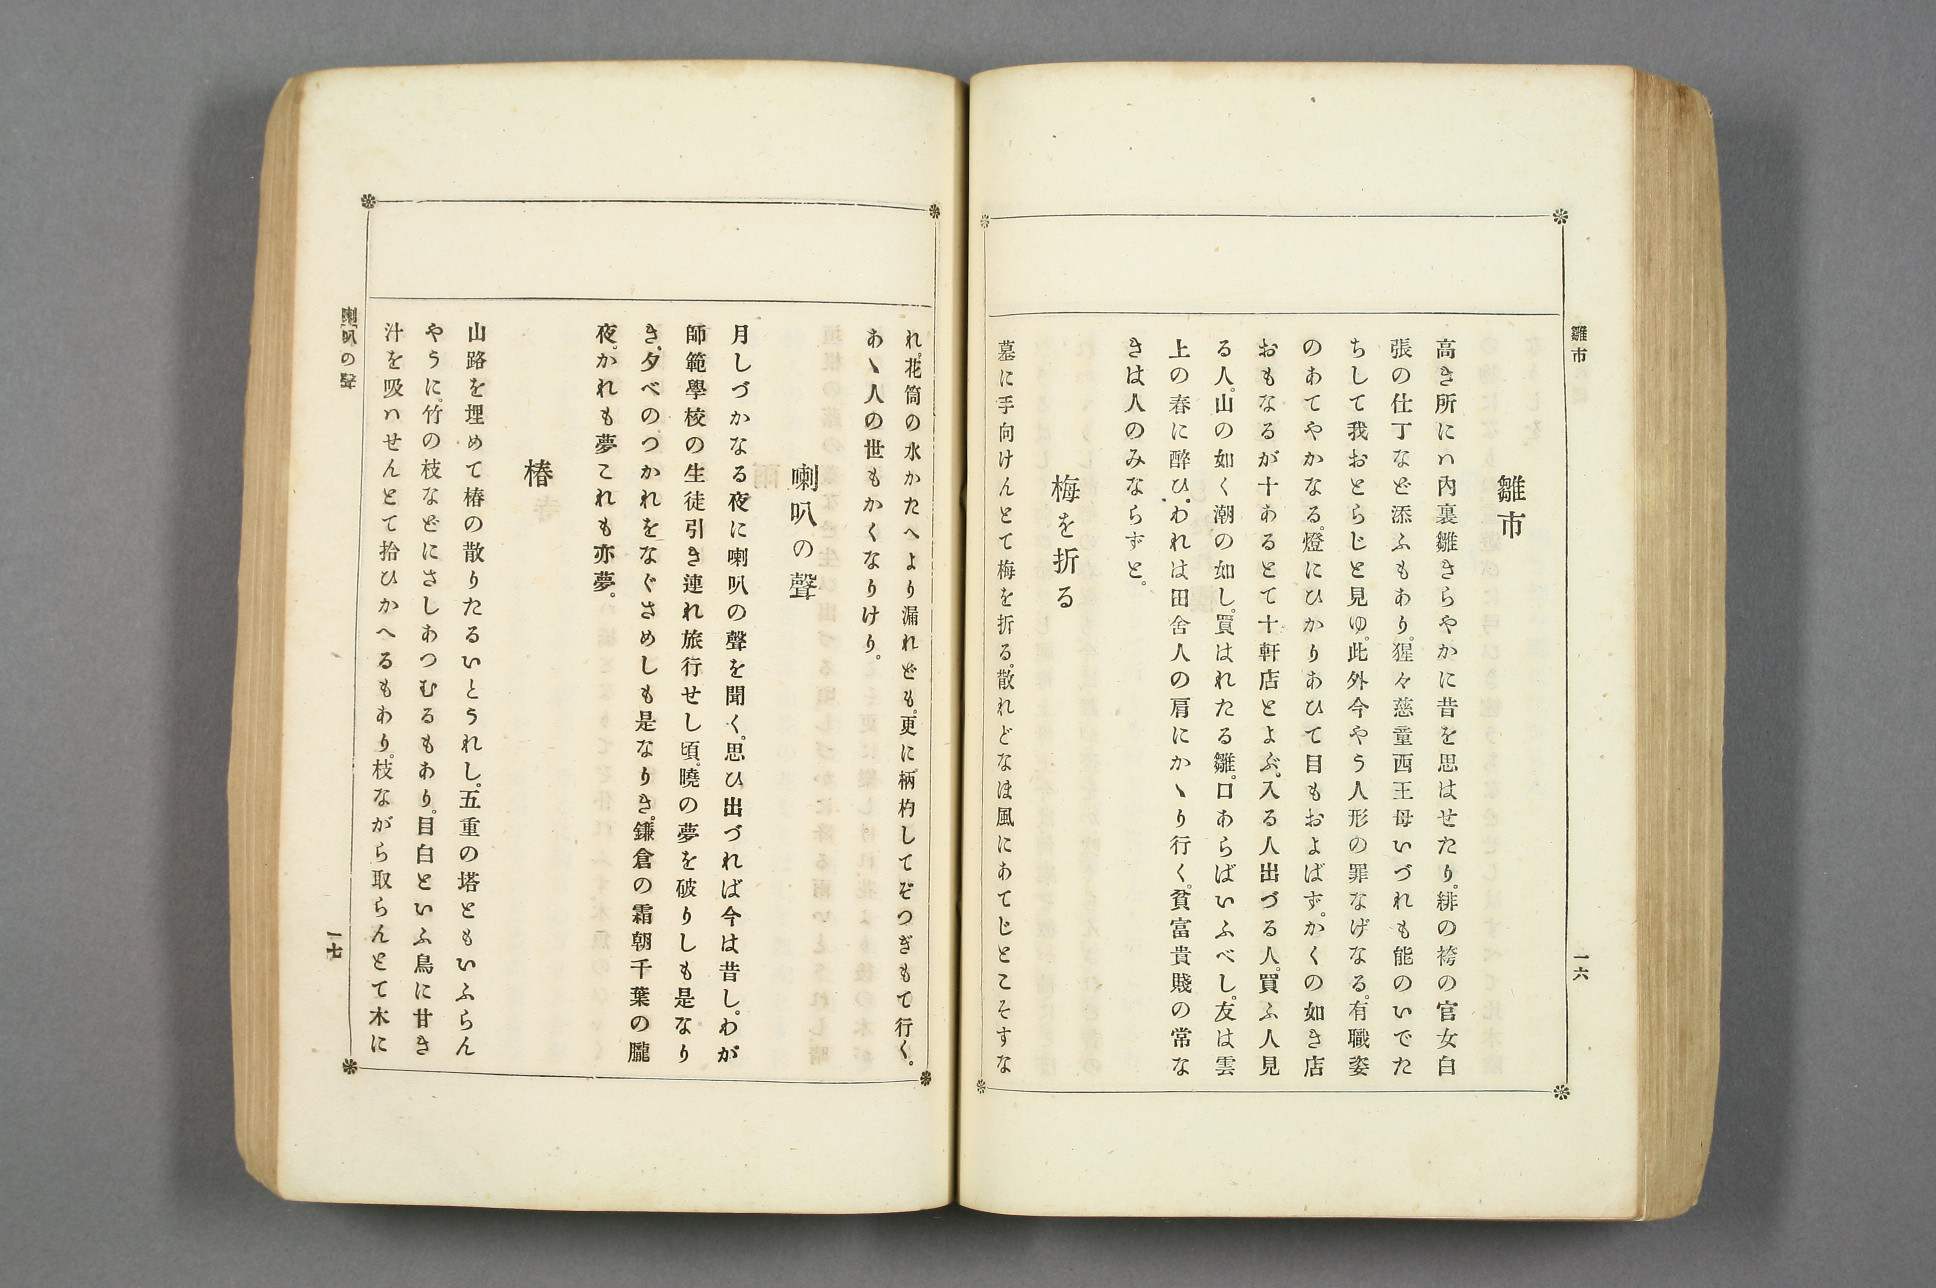 雛市
一六
雛市
高き所にハ內裏雛きらやかに昔を思はせたり。緋の袴の官女白
張の仕丁など添ふもあり。猩々慈童西王母いづれも能のいでた
ちして我おとらじと見ゆ。此外今やう人形の罪なげなる。有職姿
のあてやかなる。燈にひかりあひて目もおよばず。かくの如き店
おもなるが十あるとて十軒店とよぶ。入る人出づる人。買ふ人見
る人。山の如く潮の如し。買はれたる雛。口あらばいふべし。友は雲
上の春に醉ひ。われは田舍人の肩にかゝり行く。貧富貴賤の常な
きは人のみならずと。
梅を折る
墓に手向けんとて梅を折る。散れどなほ風にあてじとこそすな
れ。花筒の水かたへより漏れども。更に柄杓してぞつぎもて行く。
あゝ人の世もかくなりけり。
喇叭の聲
月しづかなる夜に喇叭の聲を聞く。思ひ出づれば今は昔し。わが
師範學校の生徒引き連れ旅行せし頃。曉の夢を破りしも是なり
き。夕べのつかれをなぐさめしも是なりき。鎌倉の霜朝千葉の朧
夜。かれも夢これも亦夢。
椿
山路を埋めて椿の散りたるいとうれし。五重の塔ともいふらん
やうに。竹の枝などにさしあつむるもあり。目白といふ鳥に甘き
汁を吸ハせんとて拾ひかへるもあり。枝ながら取らんとて木に
喇叭の聲
一七